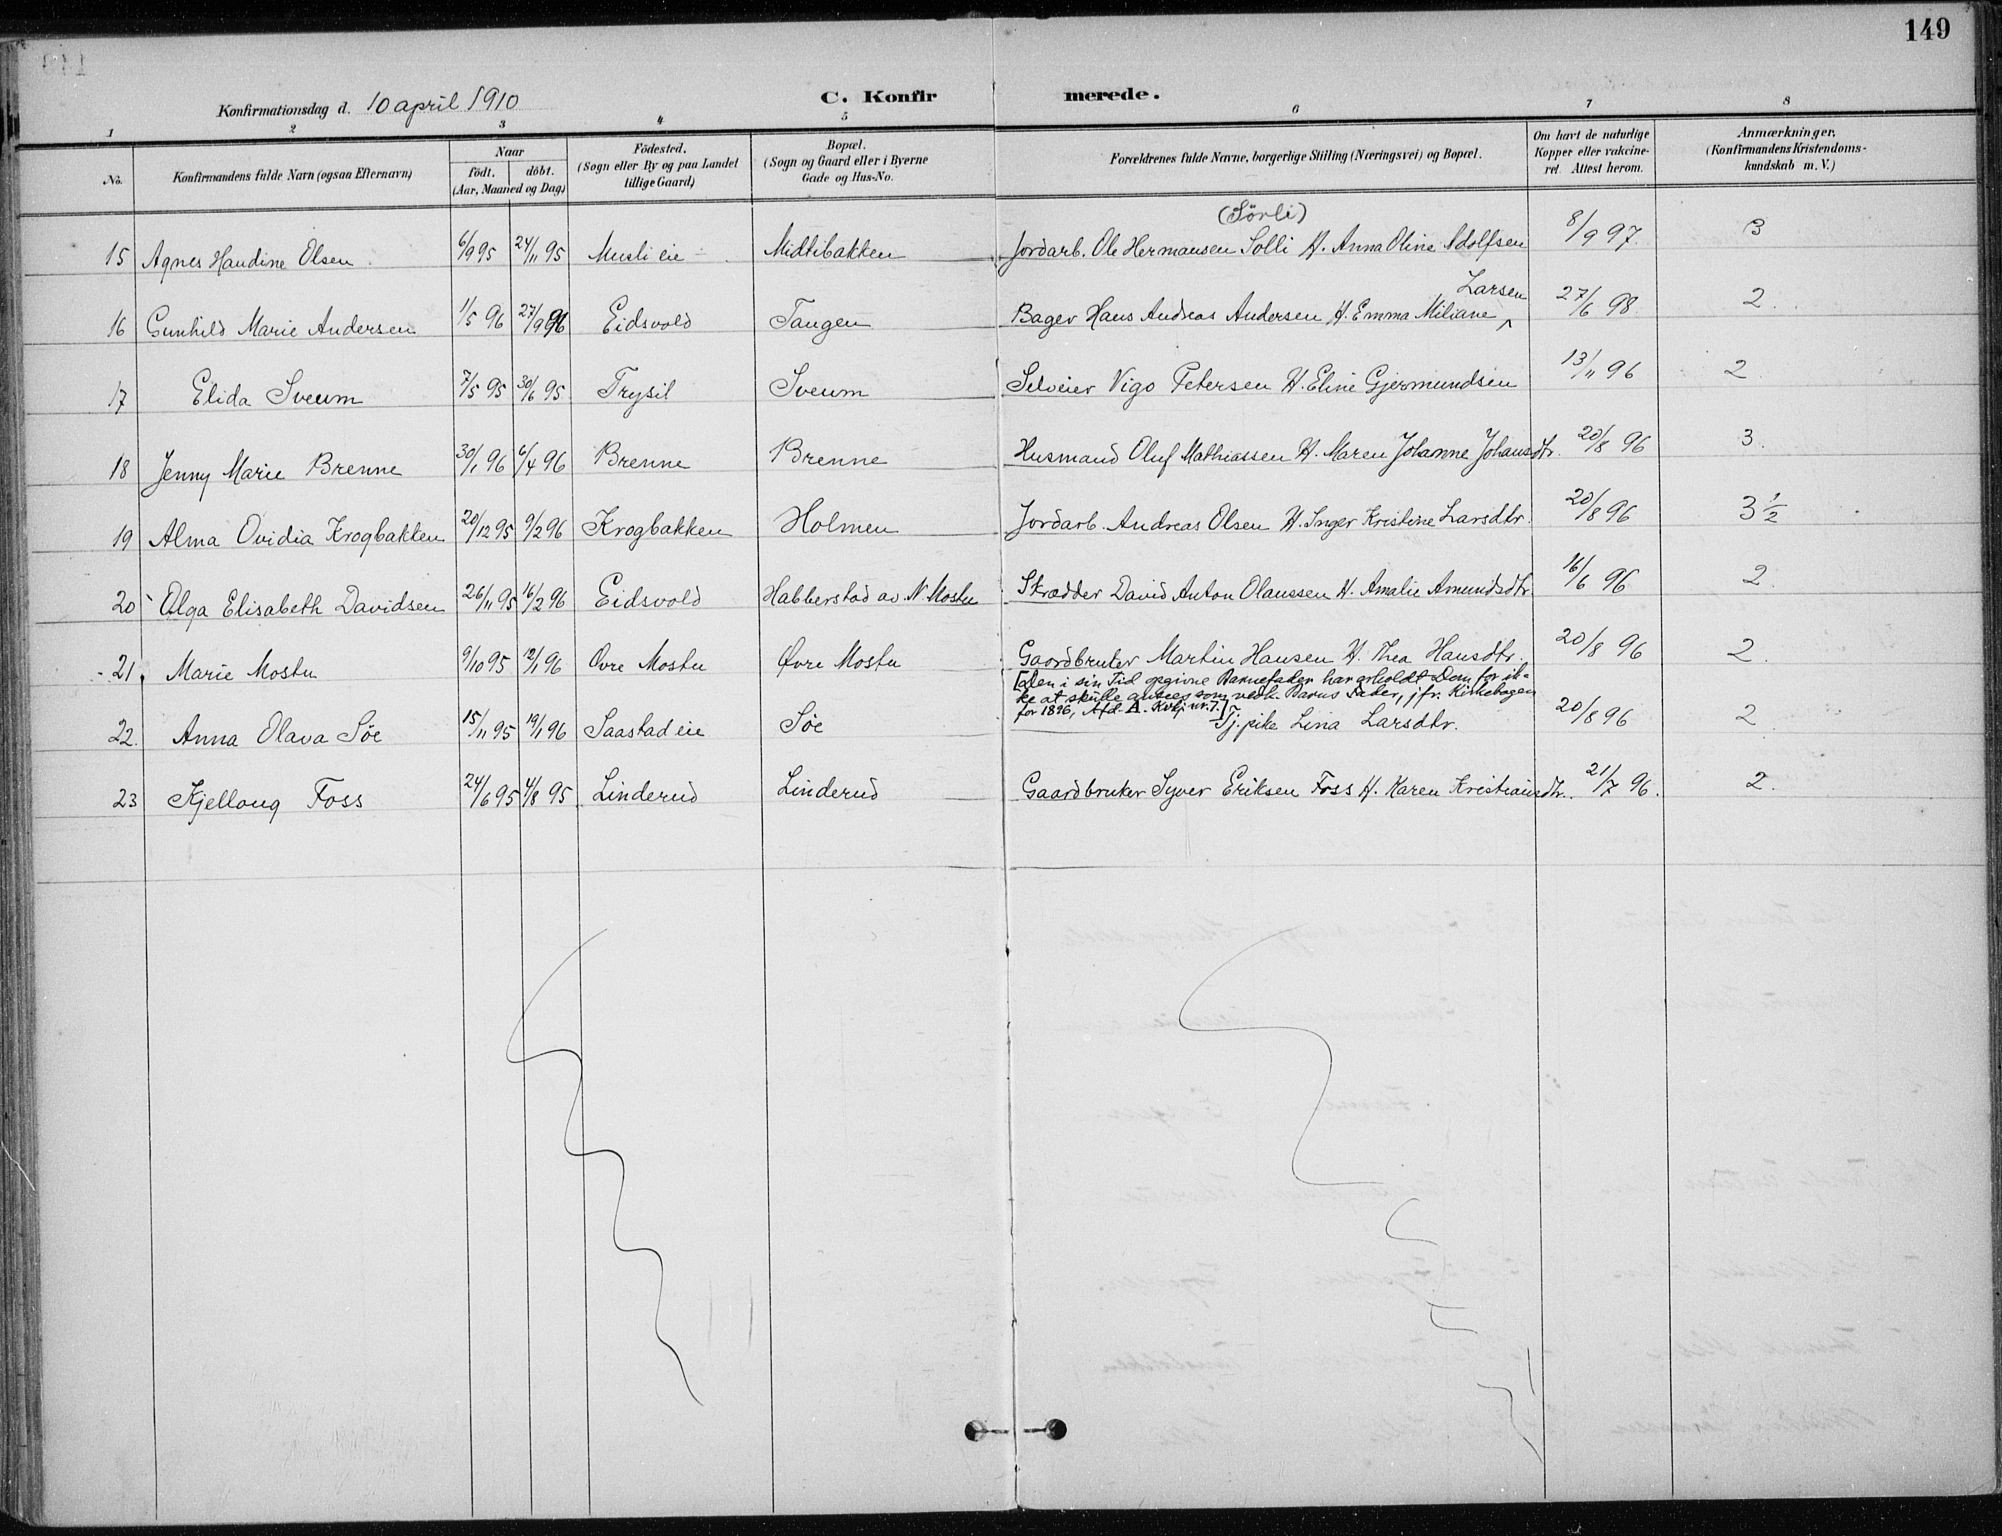 149
Konfirmationsdag d. 10 april 1910
C. Konfirmerede.
1 2 3 4 5 6 7 8
No. Konfirmandens fulde Navn (ogsaa Efternavn) Naar født. (Aar, Maaned og Dag) døbt. Fødested. (Sogn eller By og paa Landet tillige Gaard) Bopæl. (Sogn og Gaard eller i Byerne Gade og Hus-No. Forældrenes fulde Navne, borgerlige Stilling (Næringsvei) og Bopæl. Om havt de naturlige Kopper eller vakcineret. Attest herom. Anmærkninger. (Konfirmandens Kristendomskundskab m. V.)
(Sörli)
15 Agnes Haudine Olsen 6/9 95 24/11 95 Musli eie Midtibakken Jordarb. Ole Hermansen Solli H. Anna Oline Adolfsen 8/9 97. 3
Larsen
16 Gunhild Marie Andersen 1/5 96 27/9 96 Eidsvold Tangen Bager Hans Andreas Andersen H. Emma Miliane ^ 27/6 98. 2.
17 Elida Sveum 7/5 95 30/6 95 Trysil Sveum Selveier Vigo Petersen H. Eline Gjermundsen 13/11 96 2
18 Jenny Marie Brenne 30/1 96 6/4 96 Brenne Brenne Husmand Oluf Mathiassen H. Maren Johanne Johansdtr. 20/8 96 3.
19 Alma Ovidia Krogbakken 20/12 95 9/2 96 Krogbakken Holmen Jordarb. Andreas Olsen H. Inger Kristine Larsdtr. 20/8 96 3 1/2
20 Olga Elisabeth Davidsen 26/11 95 16/2 96 Eidsvold Habberstad av N. Mostu Skrædder David Anton Olaussen H. Amalie Amundsdtr 16/6 96 2.
21. Marie Mostu 9/10 95 12/1 96 Ovre Mostu Øvre Mostu Gaardbruker Martin Hansen H. Thea Hansdtr. 20/8 96 2.
[Den i sin Tid opgivne Barnefader har erholdt Dom for ik-
ke at skulle ansees som vedk. Barns Fader, jfr. Kirkebogen
for 1896, Afd. A. Kvkj. nr. 7.]
22. Anna Olava Söe 15/11 95 19/1 96 Saastad eie Söe Tj.pike Lina Larsdtr. 20/8 96 2
23 Kjellaug Foss 24/6 95 4/8 95. Linderud Linderud Gaardbruker Syver Eriksen Foss H. Karen Kristiansdtr. 21/7 96. 2.